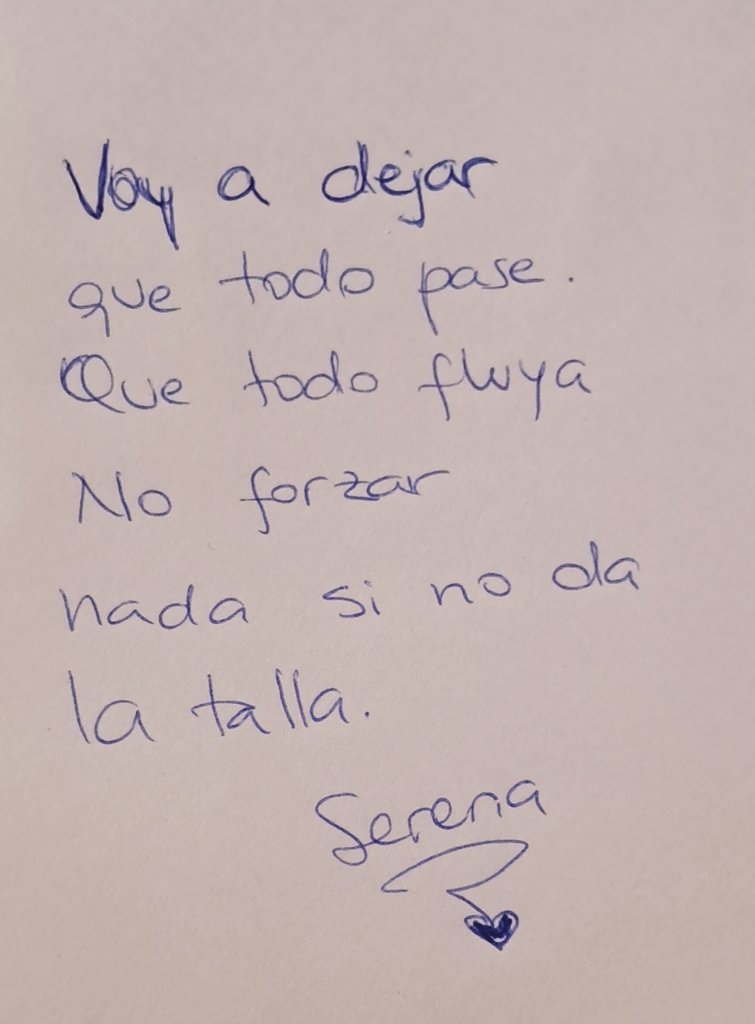 Voy a dejar
que todo pase.
Que todo fluya
No forzar
nada si no da
la talla.
Serena